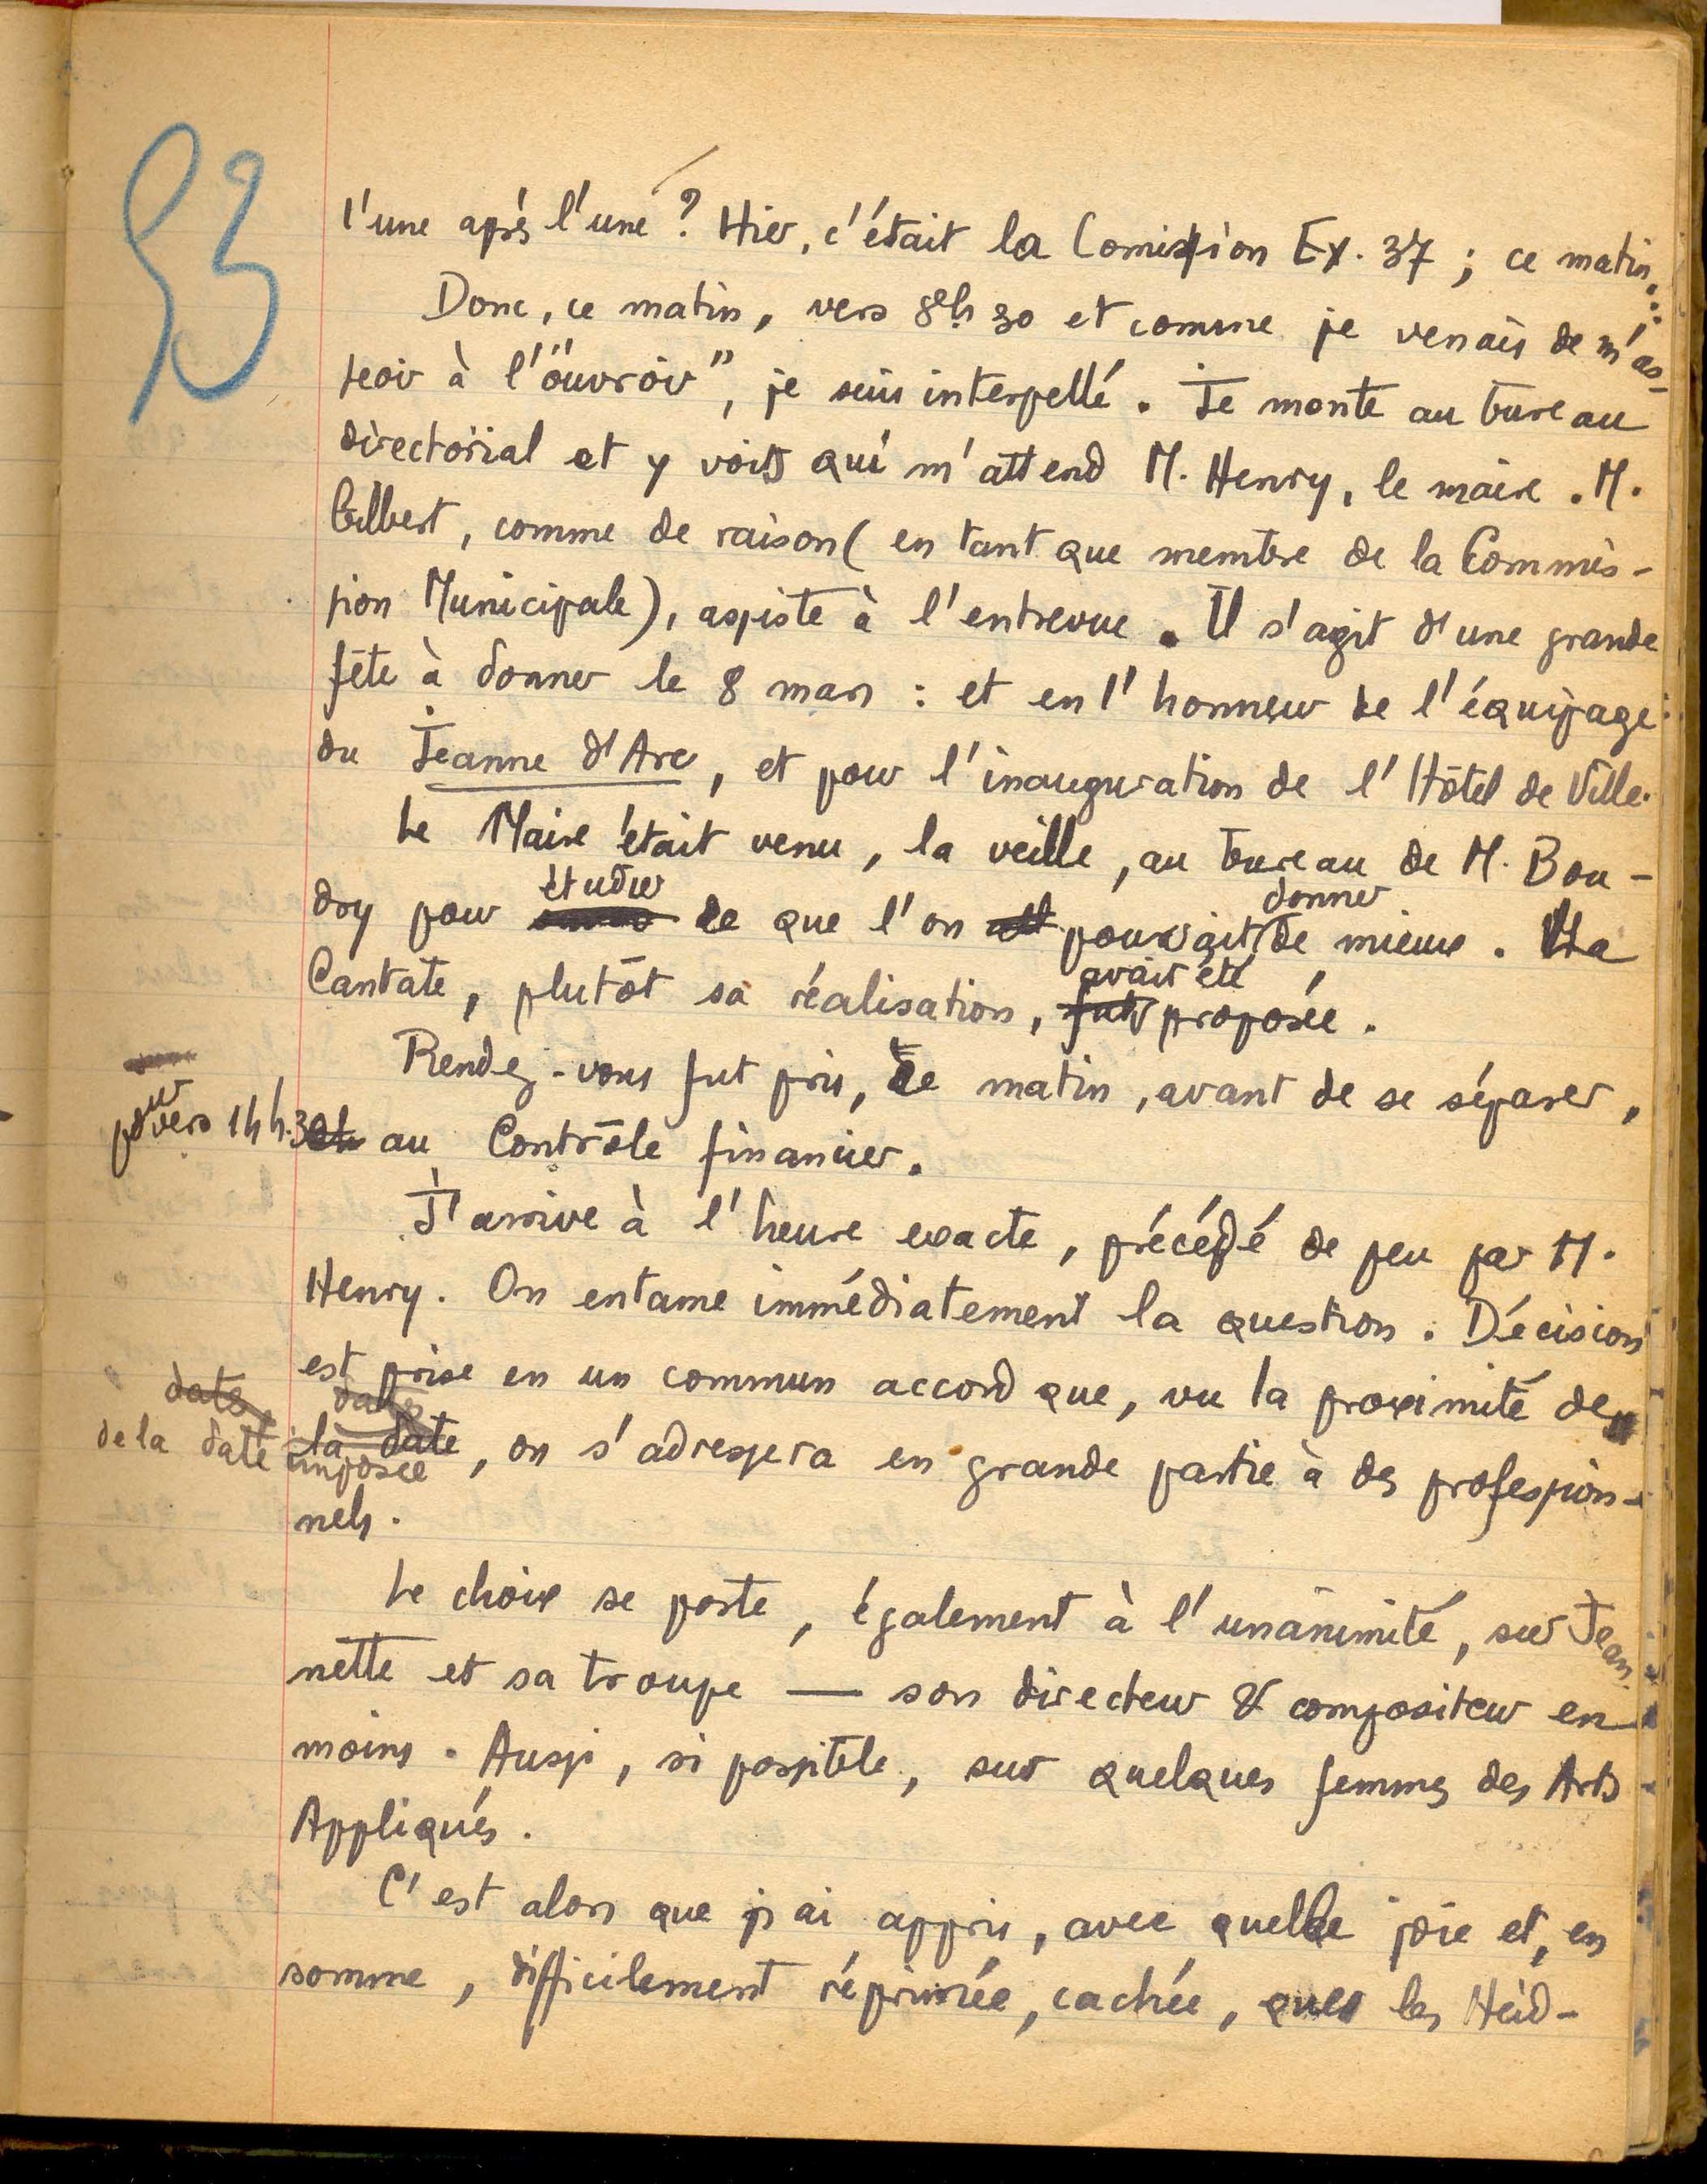 53
l'une après l'une ? Hier, c'était la Comission Ex. 37 ; ce matin...
Donc, ce matin, vers 8h 30 et comme je venais de m'as-
seoir à l'"ouvroir", je suis interpellé. Je monte au bureau
directorial et y vois qui m'attend M. Henry, le maire. M.
Gilbert, comme de raison (en tant que membre de la Commis-
sion Municipale), assiste à l'entrevue. Il s'agit d'une grande
fête à donner le 8 mars : et en l'honneur de l'équipage
du Jeanne d'Arc, et pour l'inauguration de l'Hôtel de Ville.
Le Maire était venu, la veille, au bureau de M. Bou-
étudier
donner
dry pour ce que l'on pouvait de mieux. La
avait été
Cantate, plutôt sa réalisation, fut proposée.
Rendez-vous fut pris, ce matin, avant de se séparer,
pour
vers 14h.30 au Contrôle financier.
J'arrive à l'heure exacte, précédé de peu par M.
Henry. On entame immédiatement la question. Décision
est prise en un commun accord que, vu la proximité de
date
date
de la date la date, on s'adressera en grande partie à des profession-
imposée
nels.
Le choix se porte, également à l'unanimité, sur Jean-
nette et sa troupe — son directeur & compositeur en
moins. Aussi, si possible, sur quelques femmes des Arts
Appliqués.
C'est alors que j'ai appris, avec quelle joie et, en
somme, difficilement réprimée, cachée, que les Heid-